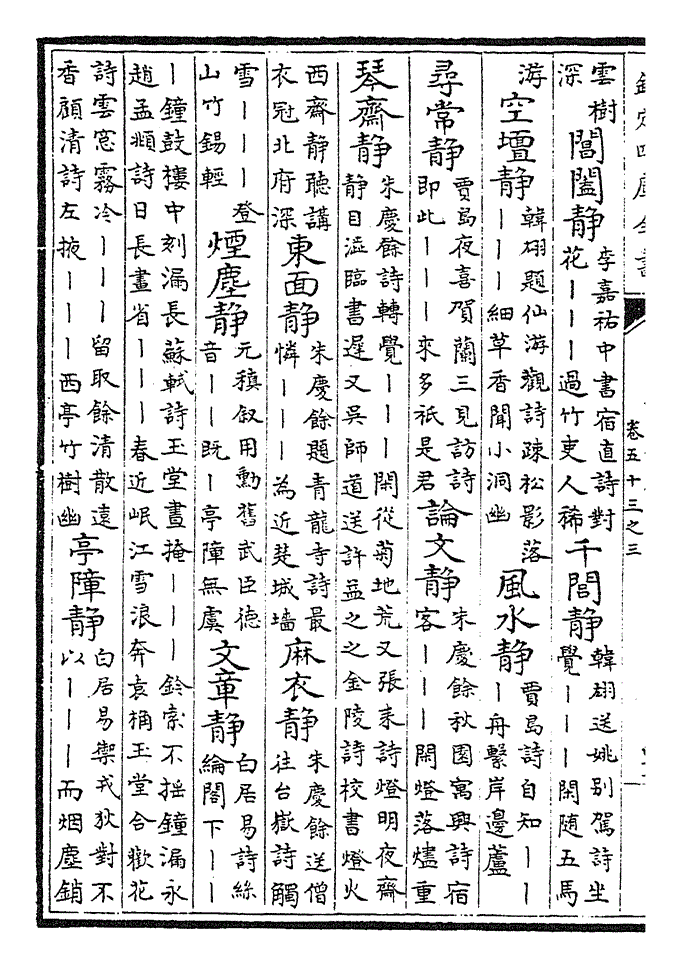 欽定四庫全書
卷五十三之三
雲樹深 閶闔静 李嘉祐中書宿直詩對花｜｜｜過竹吏人稀 千閭静 韓翃送姚别駕詩坐覺｜｜｜閑随五馬
游 空壇静 韓翃題仙游觀詩疎松影落｜｜｜細草香聞小洞幽 風水静 賈島詩自知｜｜｜舟繫岸邊蘆
尋常静 賈島夜喜賀蘭三見訪詩即此｜｜｜來多祇是君 論文静 朱慶餘秋園寓興詩宿客｜｜｜閑燈落燼重
琴齋静 朱慶餘詩轉覺｜｜｜閑從菊地荒又張耒詩燈明夜齋静目澁臨書遲又吳師道送許益之之金陵詩校書燈火
西齋静聽講衣冠北府深 東面静 朱慶餘題青龍寺詩最憐｜｜｜為近楚城墻 麻衣静 朱慶餘送僧往台嶽詩觸
雪｜｜｜登山竹錫輕 煙塵静 元稹叙用勳舊武臣德音｜｜既｜亭障無虞 文章静 白居易詩絲綸閣下｜｜
｜鐘鼓樓中刻漏長蘇軾詩玉堂晝掩｜｜｜鈴索不摇鐘漏永趙孟頫詩日長晝省｜｜｜春近岷江雪浪奔袁桷玉堂合歡花
詩雲窓霧冷｜｜｜留取餘清散遠香顧清詩左掖｜｜｜西亭竹樹幽 亭障静 白居易禦戎狄對不以｜｜｜而烟塵銷